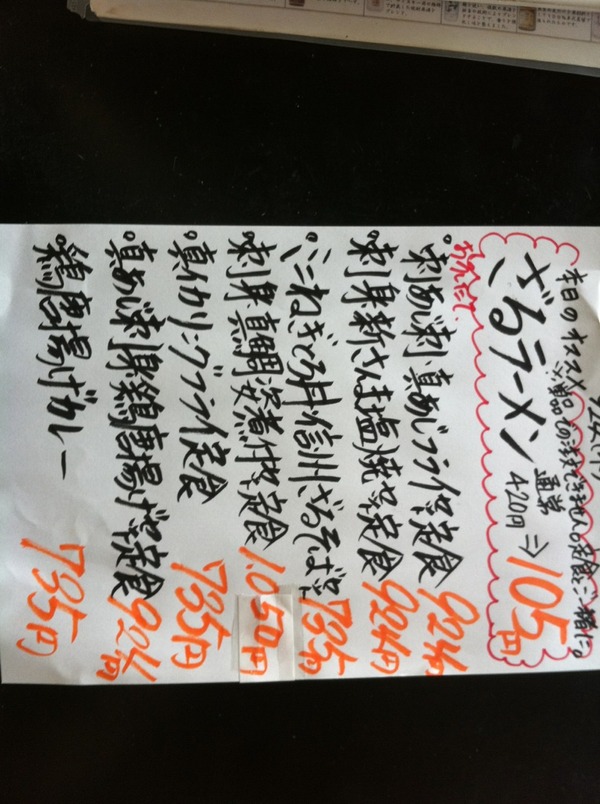 本日のオススメ
※単品での注文できません。定食とご一緒に。
ざるラーメン 通常420円⇒105円
・真あじ刺・真あじフライ定食 924円
・刺身新さんま塩焼定食 924円
・ミニねぎとろ丼・信州ざるそば 735円
・刺身真鯛姿煮付定食 1,050円
・真イカリングフライ定食 735円
・真あじ刺身鶏唐揚げ定食 924円
・鶏唐揚げカレー 735円